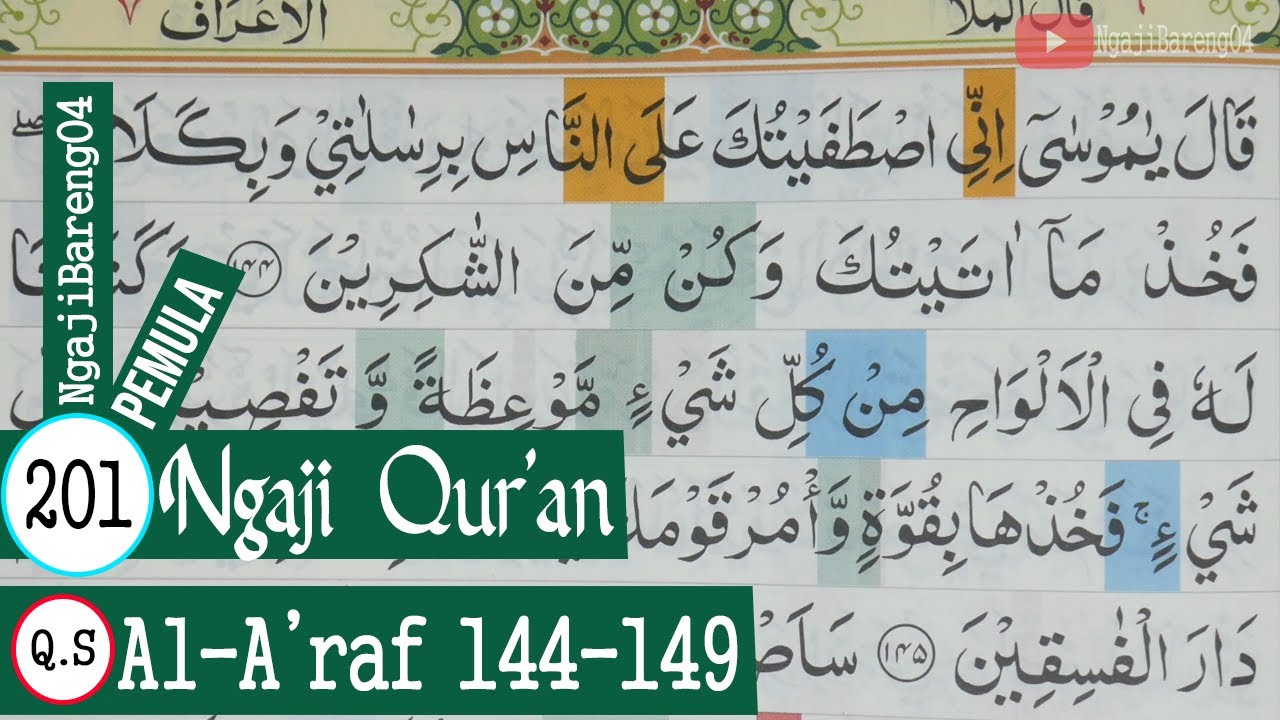 الاعراف
قال الملا
NgajiBareng04
قَالَ يٰمُوْسٰٓى اِنِّى اصْطَفَيْتُكَ عَلَى النَّاسِ بِرِسٰلٰتِيْ وَبِكَلَا
فَخُذْ مَآ اٰتَيْتُكَ وَكُنْ مِّنَ الشّٰكِرِيْنَ ١٤٤
لَهٗ فِى الْاَلْوَاحِ مِنْ كُلِّ شَيْءٍ مَّوْعِظَةً وَّ
شَيْءٍۚ فَخُذْهَا بِقُوَّةٍ وَّأْمُرْ
دَارَ الْفٰسِقِيْنَ ١٤٥
NgajiBareng04
PEMULA
201 Ngaji Qur'an
Q.S Al-A'raf 144-149